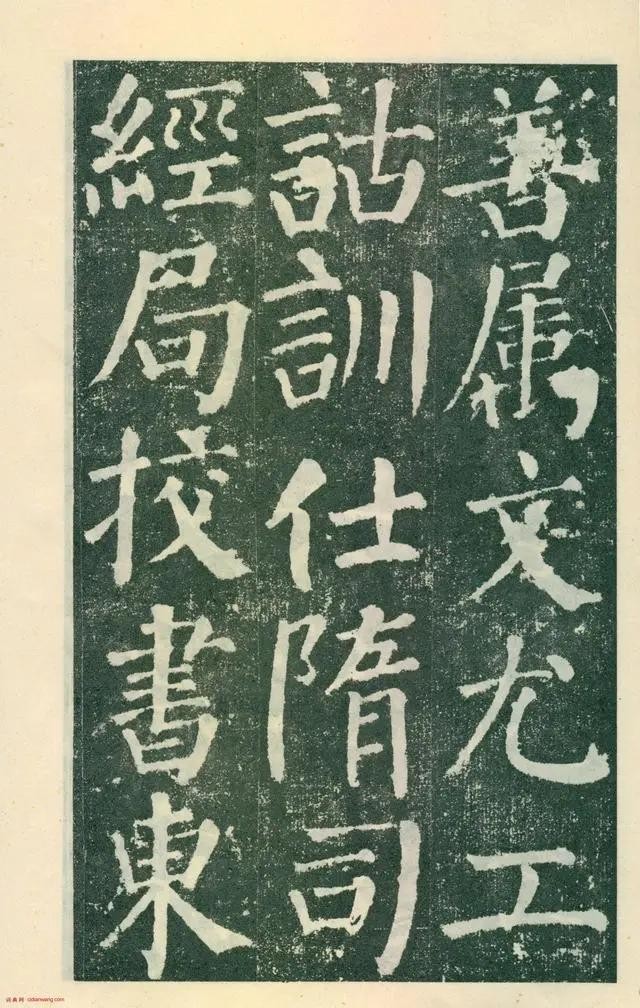 善属文尤工
詁訓仕隋司
經局校書東
词典网·cidianwang.com